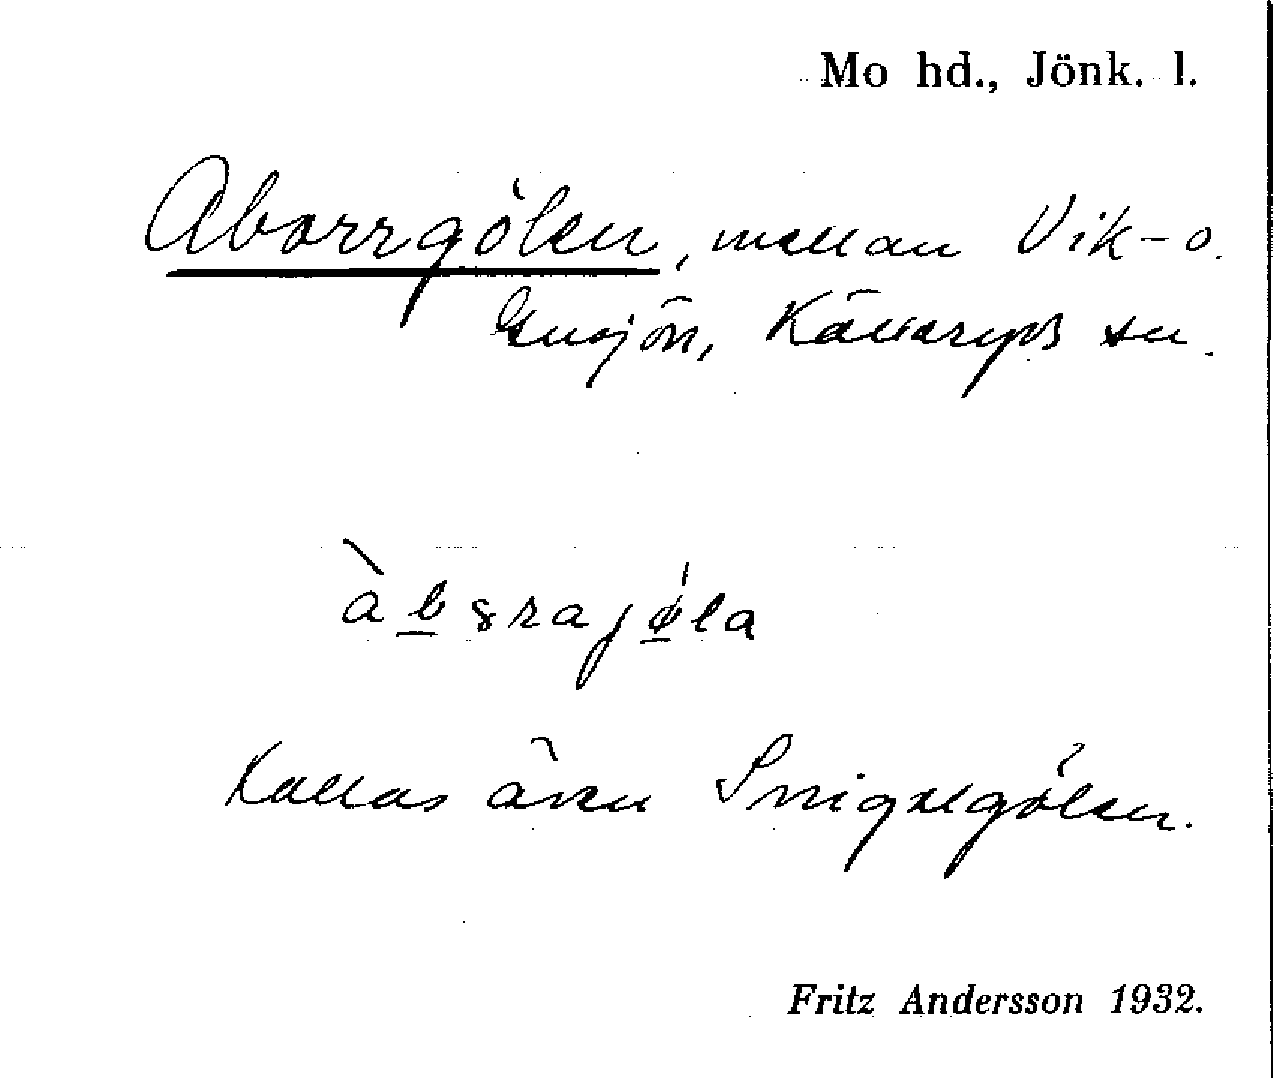 Mo hd., Jönk. l.
Aborrgölen, mellan Vik- o.
Gusjön, Källeryds sn.
àbɜrajǿla
Kallas även Snigelgölen.
Fritz Andersson 1932.